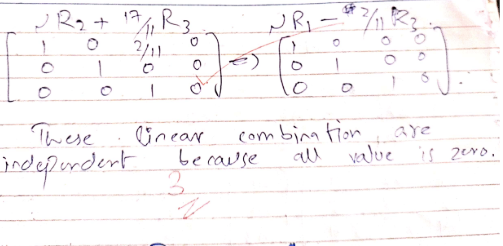 ~R2 + 17/11 R3 ~R1 - 2/11 R3
[1 0 2/11 0] [1 0 0 0]
[0 1 0 0] => [0 1 0 0]
[0 0 1 0] [0 0 1 0].
These linear combination are
independent because all value is zero.
3